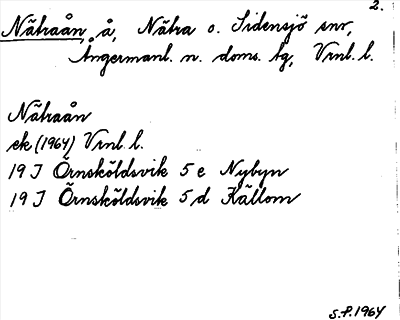 2.
Nätraån, å, Nätra o. Sidensjö snr,
Ångermanl. n. doms. tg, Vrnl. l.
Nätraån
ek (1964) Vrnl. l.
19 J Örnsköldsvik 5 e Nybyn
19 J Örnsköldsvik 5 d Källom
S.P. 1964